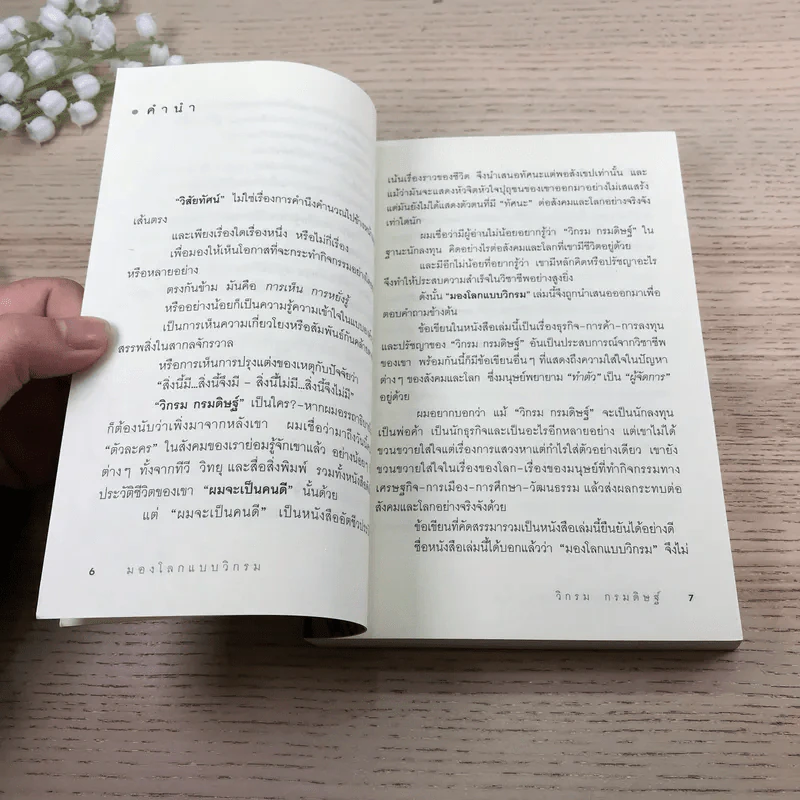 คำนำ
"วิสัยทัศน์" ไม่ใช่เรื่องการคำนึงคำนวณไปข้างหน้า
เส้นตรง
และเพียงเรื่องใดเรื่องหนึ่ง หรือไม่กี่เรื่อง
เพื่อมองให้เห็นโอกาสที่จะกระทำกิจกรรมอย่างใด
หรือหลายอย่าง
ตรงกันข้าม มันคือ การเห็น การหยั่งรู้
หรืออย่างน้อยก็เป็นความรู้ความเข้าใจในแบบ
เป็นการเห็นความเกี่ยวโยงหรือสัมพันธ์กันคล้าย
สรรพสิ่งในสากลจักรวาล
หรือการเห็นการปรุงแต่งของเหตุกับปัจจัยว่า
"สิ่งนี้มี...สิ่งนี้จึงมี – สิ่งนี้ไม่มี...สิ่งนี้จึงไม่มี"
"วิกรม กรมดิษฐ์" เป็นใคร?–หากผมอรรถาธิบาย
ก็ต้องนับว่าเพิ่งมาจากหลังเขา ผมเชื่อว่ามาถึงวันนี้
"ตัวละคร" ในสังคมของเราย่อมรู้จักเขาแล้ว อย่างน้อยๆ
ต่างๆ ทั้งจากทีวี วิทยุ และสื่อสิ่งพิมพ์ รวมทั้งหนังสือ
ประวัติชีวิตของเขา "ผมจะเป็นคนดี" นั้นด้วย
แต่ "ผมจะเป็นคนดี" เป็นหนังสืออัตชีวประ
6 มองโลกแบบวิกรม
เน้นเรื่องราวของชีวิต จึงนำเสนอทัศนะแต่พอสังเขปเท่านั้น และ
แม้ว่ามันจะแสดงหัวจิตหัวใจปุถุชนของเขาออกมาอย่างไม่เสแสร้ง
แต่มันยังไม่ได้แสดงตัวตนที่มี "ทัศนะ" ต่อสังคมและโลกอย่างจริงจัง
เท่าใดนัก
ผมเชื่อว่ามีผู้อ่านไม่น้อยอยากรู้ว่า "วิกรม กรมดิษฐ์" ใน
ฐานะนักลงทุน คิดอย่างไรต่อสังคมและโลกที่เขามีชีวิตอยู่ด้วย
และมีอีกไม่น้อยที่อยากรู้ว่า เขามีหลักคิดหรือปรัชญาอะไร
จึงทำให้ประสบความสำเร็จในวิชาชีพอย่างสูงยิ่ง
ดังนั้น "มองโลกแบบวิกรม" เล่มนี้จึงถูกนำเสนอออกมาเพื่อ
ตอบคำถามข้างต้น
ข้อเขียนในหนังสือเล่มนี้เป็นเรื่องธุรกิจ-การค้า-การลงทุน
และปรัชญาของ "วิกรม กรมดิษฐ์" อันเป็นประสบการณ์จากวิชาชีพ
ของเขา พร้อมกันนี้ก็มีข้อเขียนอื่นๆ ที่แสดงถึงความใส่ใจในปัญหา
ต่างๆ ของสังคมและโลก ซึ่งมนุษย์พยายาม "ทำตัว" เป็น "ผู้จัดการ"
อยู่ด้วย
ผมอยากบอกว่า แม้ "วิกรม กรมดิษฐ์" จะเป็นนักลงทุน
เป็นพ่อค้า เป็นนักธุรกิจและเป็นอะไรอีกหลายอย่าง แต่เขาไม่ได้
ขวนขวายใส่ใจแต่เรื่องการแสวงหาแต่กำไรใส่ตัวอย่างเดียว เขายัง
ขวนขวายใส่ใจในเรื่องของโลก-เรื่องของมนุษย์ที่ทำกิจกรรมทาง
เศรษฐกิจ-การเมือง-การศึกษา-วัฒนธรรม แล้วส่งผลกระทบต่อ
สังคมและโลกอย่างจริงจังด้วย
ข้อเขียนที่คัดสรรมารวมเป็นหนังสือเล่มนี้ยืนยันได้อย่างดี
ชื่อหนังสือเล่มนี้ได้บอกแล้วว่า "มองโลกแบบวิกรม" จึงไม่
วิกรม กรมดิษฐ์ 7